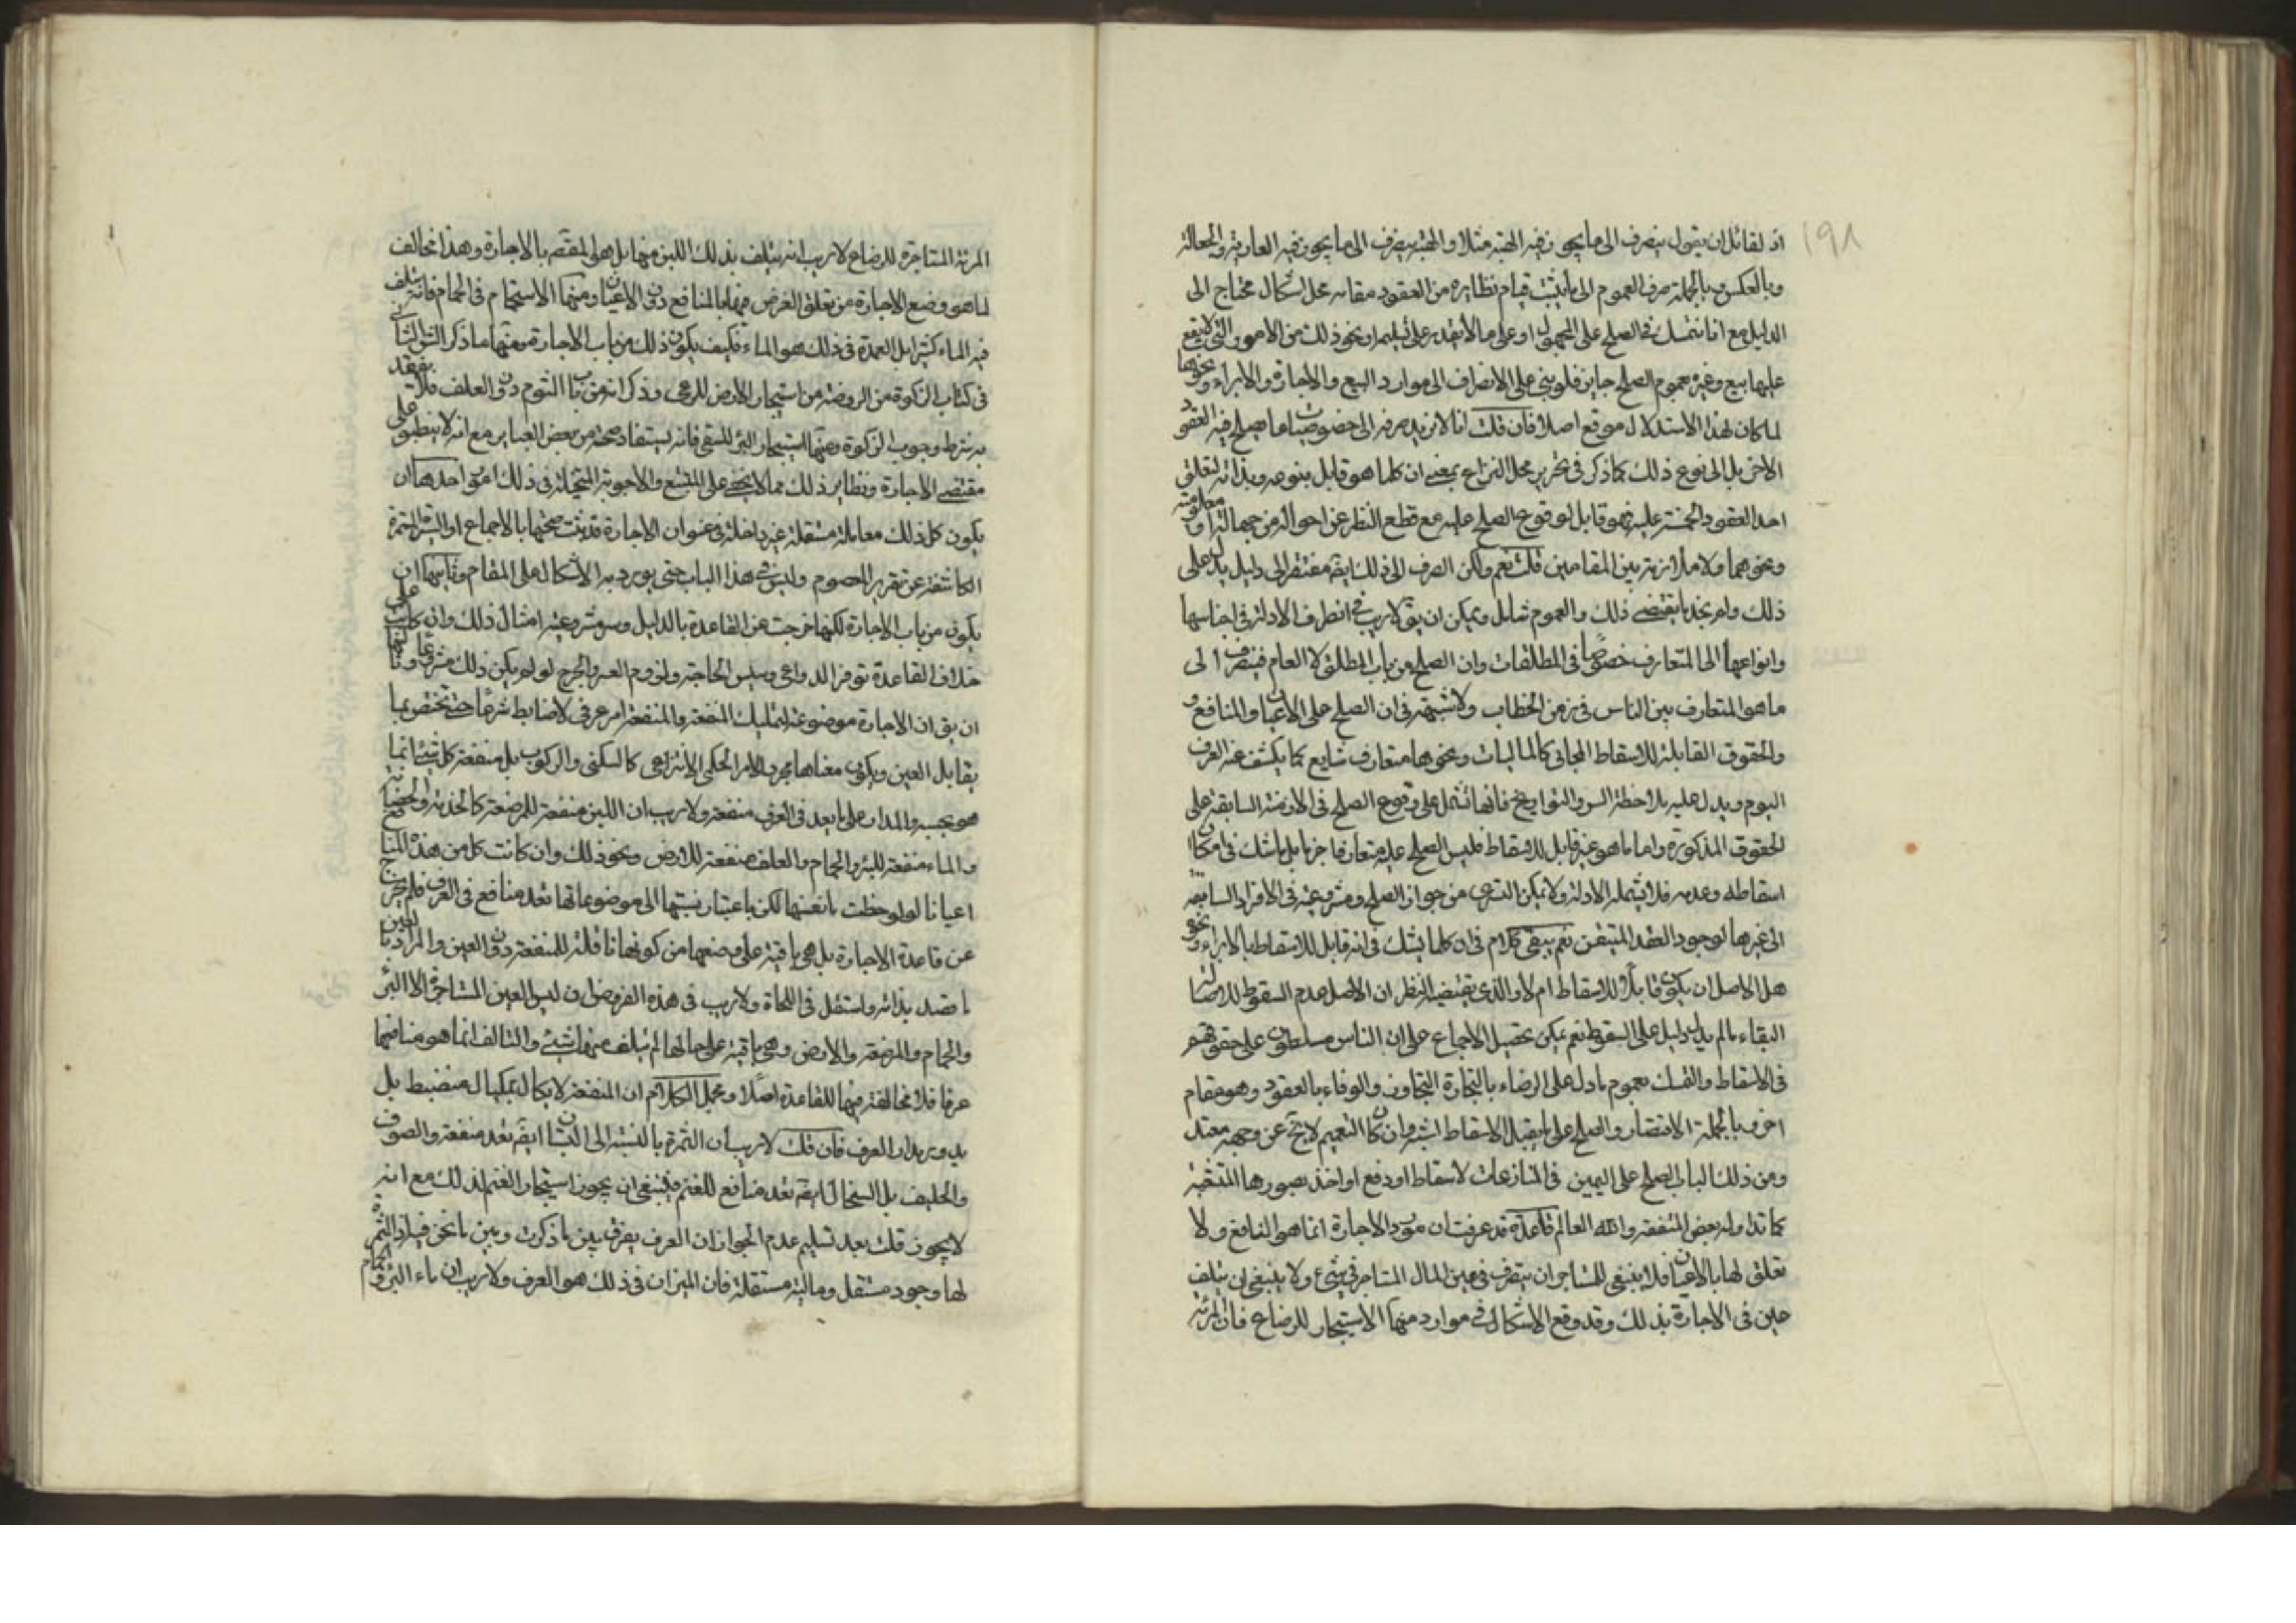 ١٩٨
اذ لقائل ان يقول ينصرف الى ما يجوز فيه الهبة مثلا والهبة ينصرف الى ما يجوز فيه العارية والجعالة
وبالعكس وبالجملة صرف العموم الى ما يثبت قيام نظايره من العقود مقامه محل اشكال محتاج الى
الدليل مع انا نتمسك في الصلح على المجهول او على ما لا يقدر على تسليمه او نحو ذلك من الامور التي لا يقع
عليها بيع وغيره بعموم الصلح جايز فلو بنى على الانصراف الى موارد البيع والاجارة والابراء ونحوها
لما كان لهذا الاستدلال موقع اصلا فان قلت انا لا نريد صرفه الى خصوصيات ما يصلح فيه العقود
الاخر بل الى نوع ذلك كما ذكر في تحرير محل النزاع بمعنى ان كلما هو قابل بنوعه وبذاته لتعلق
احد العقود الخمسة عليه فهو قابل لوقوع الصلح عليه مع قطع النظر عن احواله من جهالة او معلومية
ونحوهما ولا ملازمة بين المقامين قلت نعم ولكن الصرف الى ذلك ايضا مفتقر الى دليل يدل على
ذلك ولم نجد ما يقتضي ذلك والعموم شامل ويمكن ان يق لا ريب في انصراف الادلة في اجناسها
وانواعها الى المتعارف خصوصًا في المطلقات وان الصلح من باب المطلق لا العام فينصرف الى
ما هو المتعارف بين الناس في زمن الخطاب ولا شبهة في ان الصلح على الاعيان والمنافع و
والحقوق القابلة للاسقاط المجاني كالماليات ونحوها متعارف شايع كما يكشف عنه العرف
اليوم ويدل عليه ملاحظة السير والتواريخ فانها تشتمل على وقوع الصلح في الازمنة السابقة على
الحقوق المذكورة واما ما هو غير قابل للاسقاط فليس الصلح عليه متعارفا جزما بل ما شك في امكان
اسقاطه وعدمه فلا يشمله الادلة ولا يمكن التسري من جواز الصلح ومشروعيته في الافراد السابقة
الى غيرها لوجود العقد المتيقن نعم يبقى كلام في ان كلما يشك في انه قابل للاسقاط بالابراء ونحوه
هل الاصل ان يكون قابلًا للاسقاط ام لا والذي يقتضيه النظر ان الاصل عدم السقوط لاصالة
البقاء ما لم يدل دليل على السقوط نعم يمكن تحصيل الاجماع على ان الناس مسلطون على حقوقهم
في الاسقاط والتمسك بعموم ما دل على الرضاء بالتجارة التجاوز والوفاء بالعقود وهو مقام
اخر وبالجملة الاقتصار والصلح على ما يقبل الاسقاط اشبه وان كان التعميم لا يخ عن وجه معتد
ومن ذلك الباب الصلح على اليمين في المنازعات لاسقاط او دفع او اخذ بصورها المتشعبة
كما تداوله بعض المتفقهة والله العالم قاعدة قد عرفت ان مورد الاجارة انما هو المنافع ولا
تعلق لها بالاعيان فلا ينبغي للمستاجر ان يتصرف في عين المال المستاجر في شيء ولا ينبغي ان يتلف
عين في الاجارة بذلك وقد وقع الاشكال في موارد منها الاستيجار للرضاع فان المرئة
المرئة المستاجرة للرضاع لا ريب انه يتلف بذلك اللبن منها بل هو المقصد بالاجارة وهذا مخالف
لما هو وضع الاجارة من تعلق الغرض فيها بالمنافع دون الاعيان ومنها الاستحمام في الحمام فانه يتلف
فيه الماء كثيرا بل العمدة في ذلك هو الماء فكيف يكون ذلك من باب الاجارة ومنها ما ذكر الشهيد الثاني
في كتاب الزكوة من الروضة من استيجار الارض للرعي وذكر انه من باب السوم دون العلف فلا يفقد
به شرط وجوب الزكوة ومنها استيجار البئر للسقي فانه يستفاد صحته من بعض العباير مع انه لا ينطبق على
مقتضي الاجارة ونظاير ذلك مما لا يخفى على المتتبع والاجوبة المتخيلة في ذلك امور احدها ان
يكون كل ذلك معاملة مستقلة غير داخلة في عنوان الاجارة قد ثبت صحتها بالاجماع او السيرة المستمرة
الكاشفة عن تقرير المعصوم وليس في هذا الباب حتى يورد به الاشكال على المقام وثانيها ان
يكون من باب الاجارة لكنها خرجت عن القاعدة بالدليل وسر مشروعية امثال ذلك وان كانت على
خلاف القاعدة توفر الدواعي ومسيس الحاجة ولزوم العسر والحرج لو لم يكن ذلك مشروعًا وثالثها
ان يق ان الاجارة موضوعة لتمليك المنفعة والمنفعة امر عرفي لا ضابط شرعًا حتى تختص بما
يقابل العين ويكون معناها مجرد الامر الحكمي الانتزاعي كالسكنى والركوب بل منفعة كل شيء انما
هو بحسبه والمدار على ما يعد في العرف منفعة ولا ريب ان اللبن منفعة للمرضعة كالخدمة والحضانة
والماء منفعة للبئر والحمام والعلف منفعة للارض ونحو ذلك وان كانت كل من هذه المنافع
اعيانا لو لوحظت بانفسها لكن باعتبار نسبتها الى موضوعاتها تعد منافع في العرف فلم يخرج
عن قاعدة الاجارة بل هي باقية على وضعها من كونها ناقلة للمنفعة دون العين والمراد بالعين
ما قصد بذاته واستقل في اللحاظ ولا ريب في هذه الفروض ان ليس العين المستاجرة الا البئر
والحمام والمرضعة والارض وهي باقية على حالها لم يتلف منها شيء والتالف انما هو منافعها
عرفا فلا مخالفة فيها للقاعدة اصلًا ومجمل الكلام ان المنفعة لا يكال بمكيال منضبط بل
يدور مدار العرف فان قلت لا ريب ان الثمرة بالنسبة الى البستان ايضا تعد منفعة والصوف
والحليب بل السخال ايضا تعد منافع للغنم فينبغي ان يجوز استيجار الغنم لذلك مع انه
لا يجوز قلت بعد تسليم عدم الجواز ان العرف يفرق بين ما ذكرت وبين ما نحن فيه اذ الثمرة
لها وجود مستقل ومالية مستقلة فان الميزان في ذلك هو العرف ولا ريب ان ماء البئر والحمام